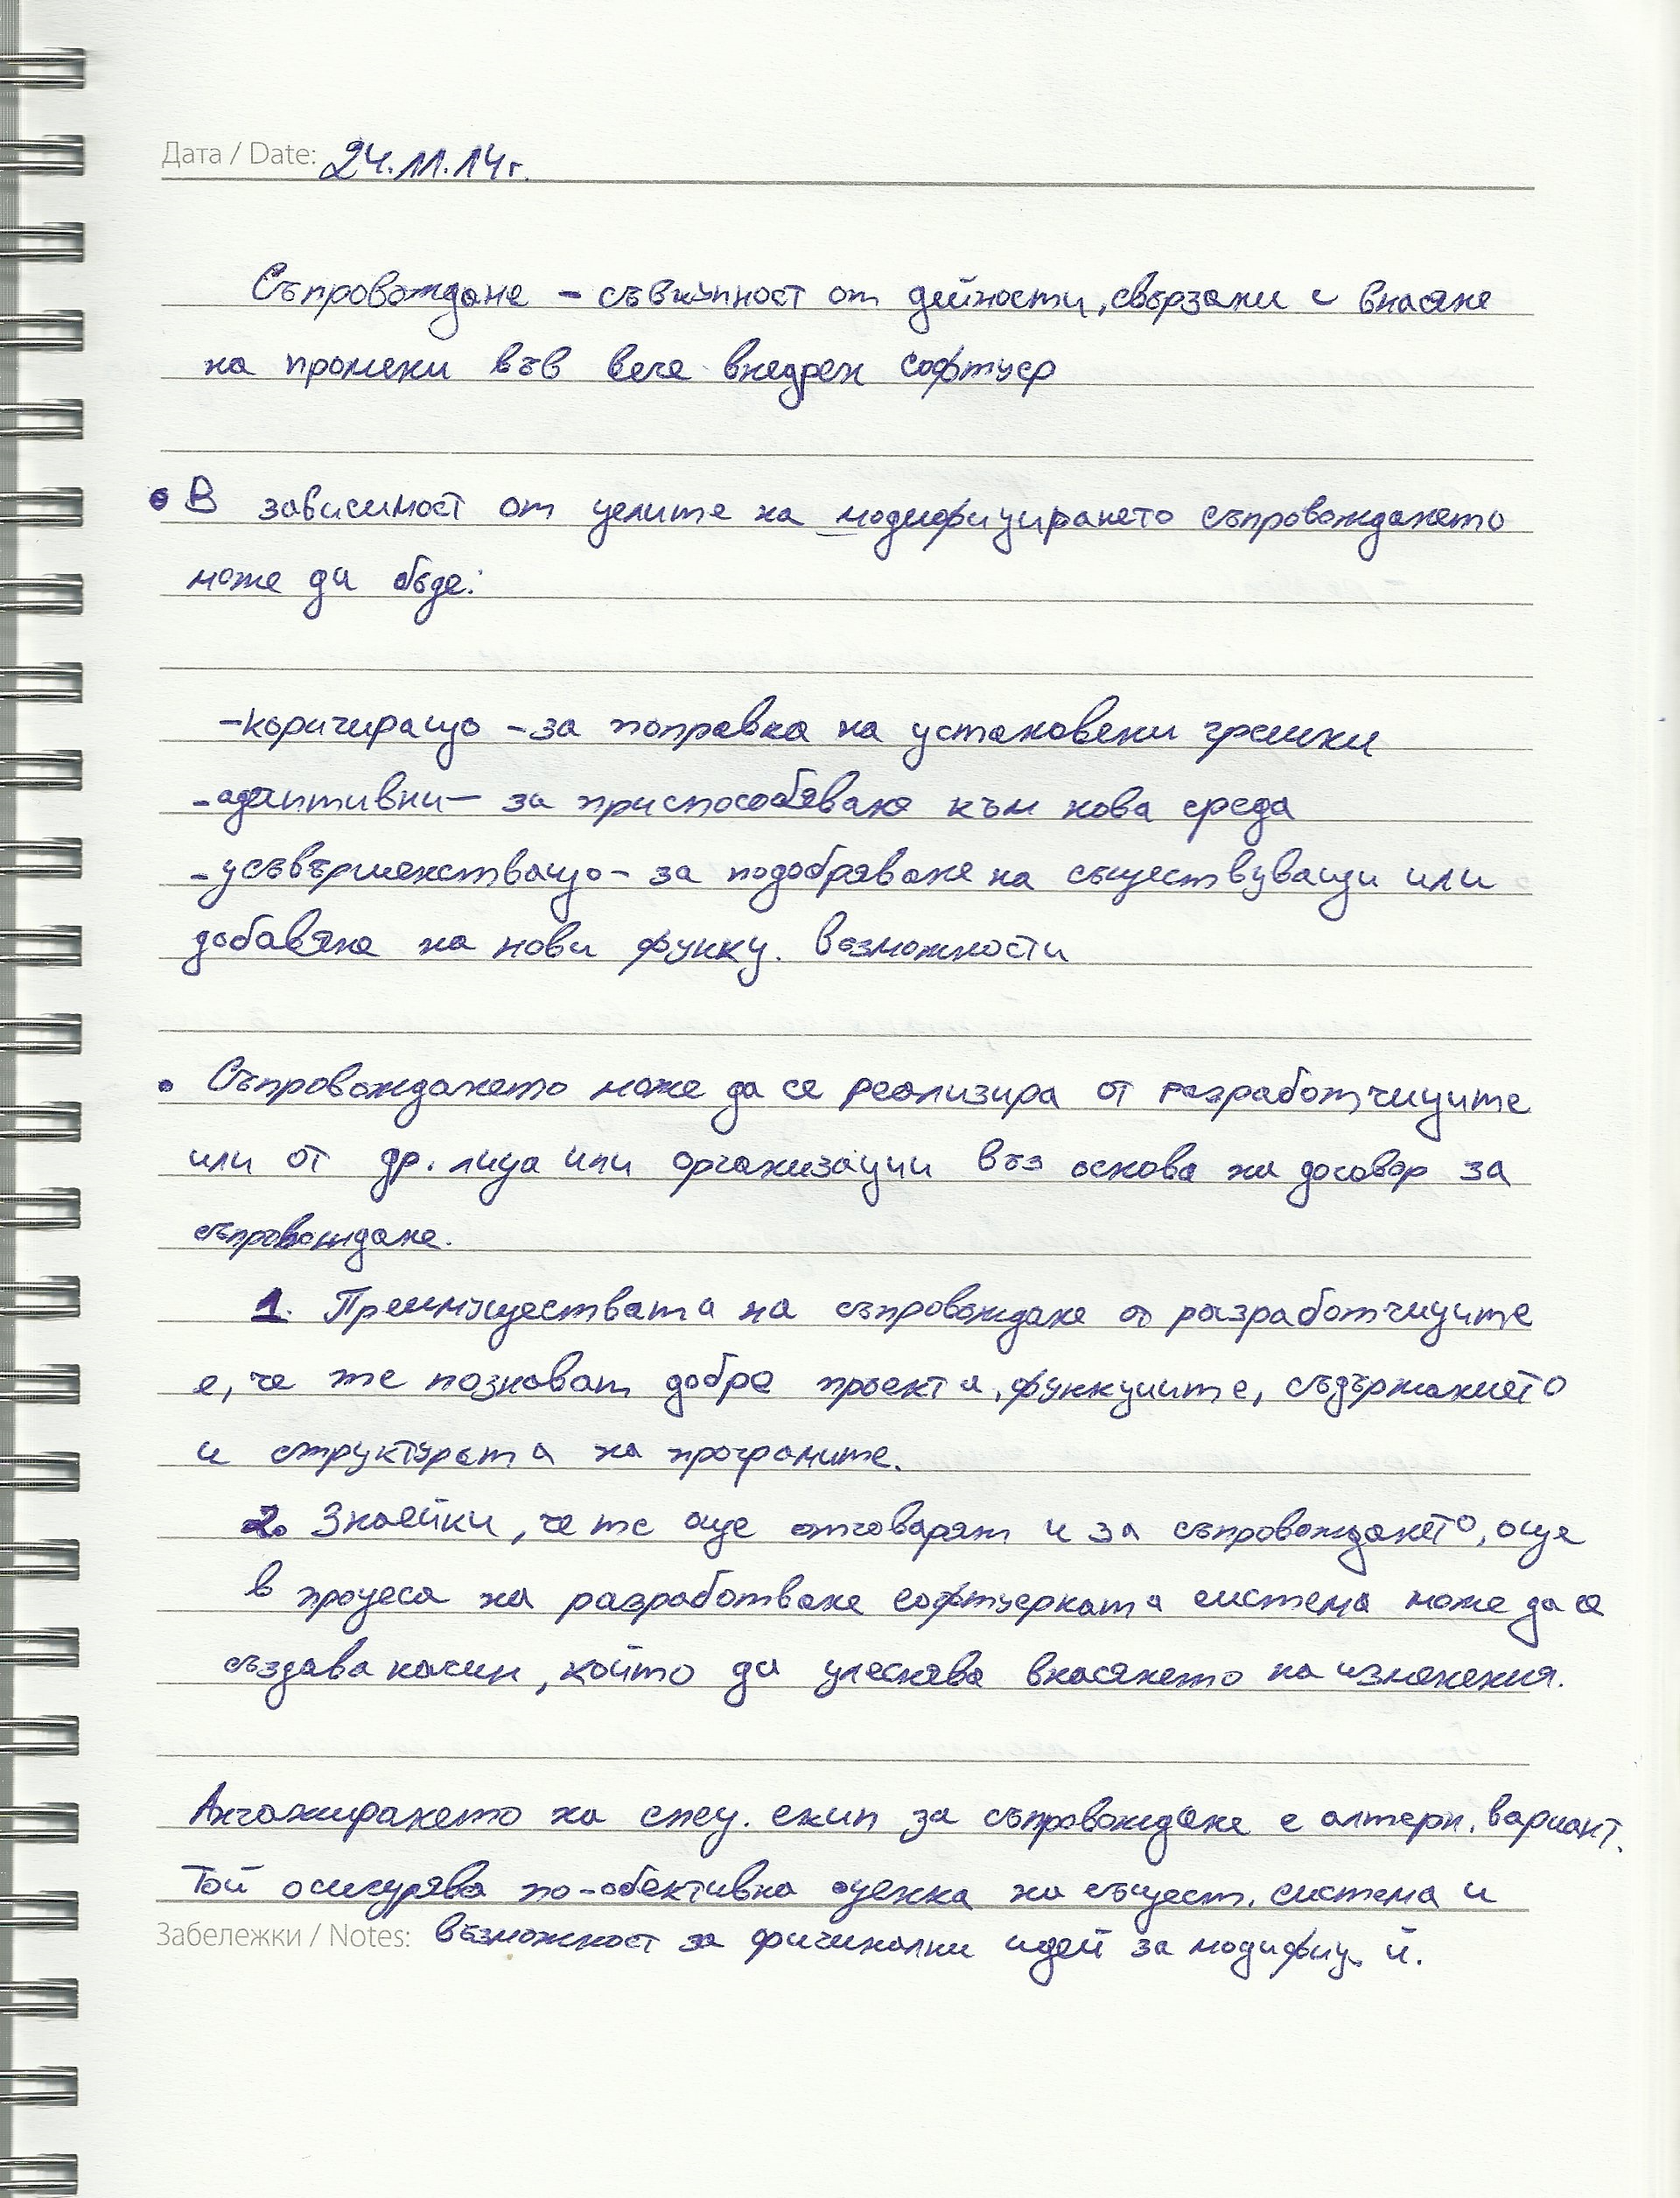 Дата / Date: 24.11.14г.
Съпровождане - съвкупност от дейности, свързани с внасяне
на промени във вече внедрен софтуер
• В зависимост от целите на модифицирането съпровождането
може да бъде:
-коригиращо - за поправка на установени грешки
-адаптивни - за приспособяване към нова среда
-усъвършенстващо - за подобряване на съществуващи или
добавяне на нови функц. възможности
• Съпровождането може да се реализира от разработчиците
или от др. лица или организации въз основа на договор за
съпровождане.
1. Преимуществата на съпровождане от разработчиците
е, че те познават добре проекта, функциите, съдържанието
и структурата на програмите.
2. Знаейки, че те още отговарят и за съпровождането, още
в процеса на разработване софтуерната система може да се
създава начин, който да улеснява внасянето на изменения.
Ангажирането на спец. екип за съпровождане е алтерн. вариант.
Той осигурява по-обективна оценка на същест. система и
Забележки / Notes: възможност за оригинални идеи за модифиц. й.